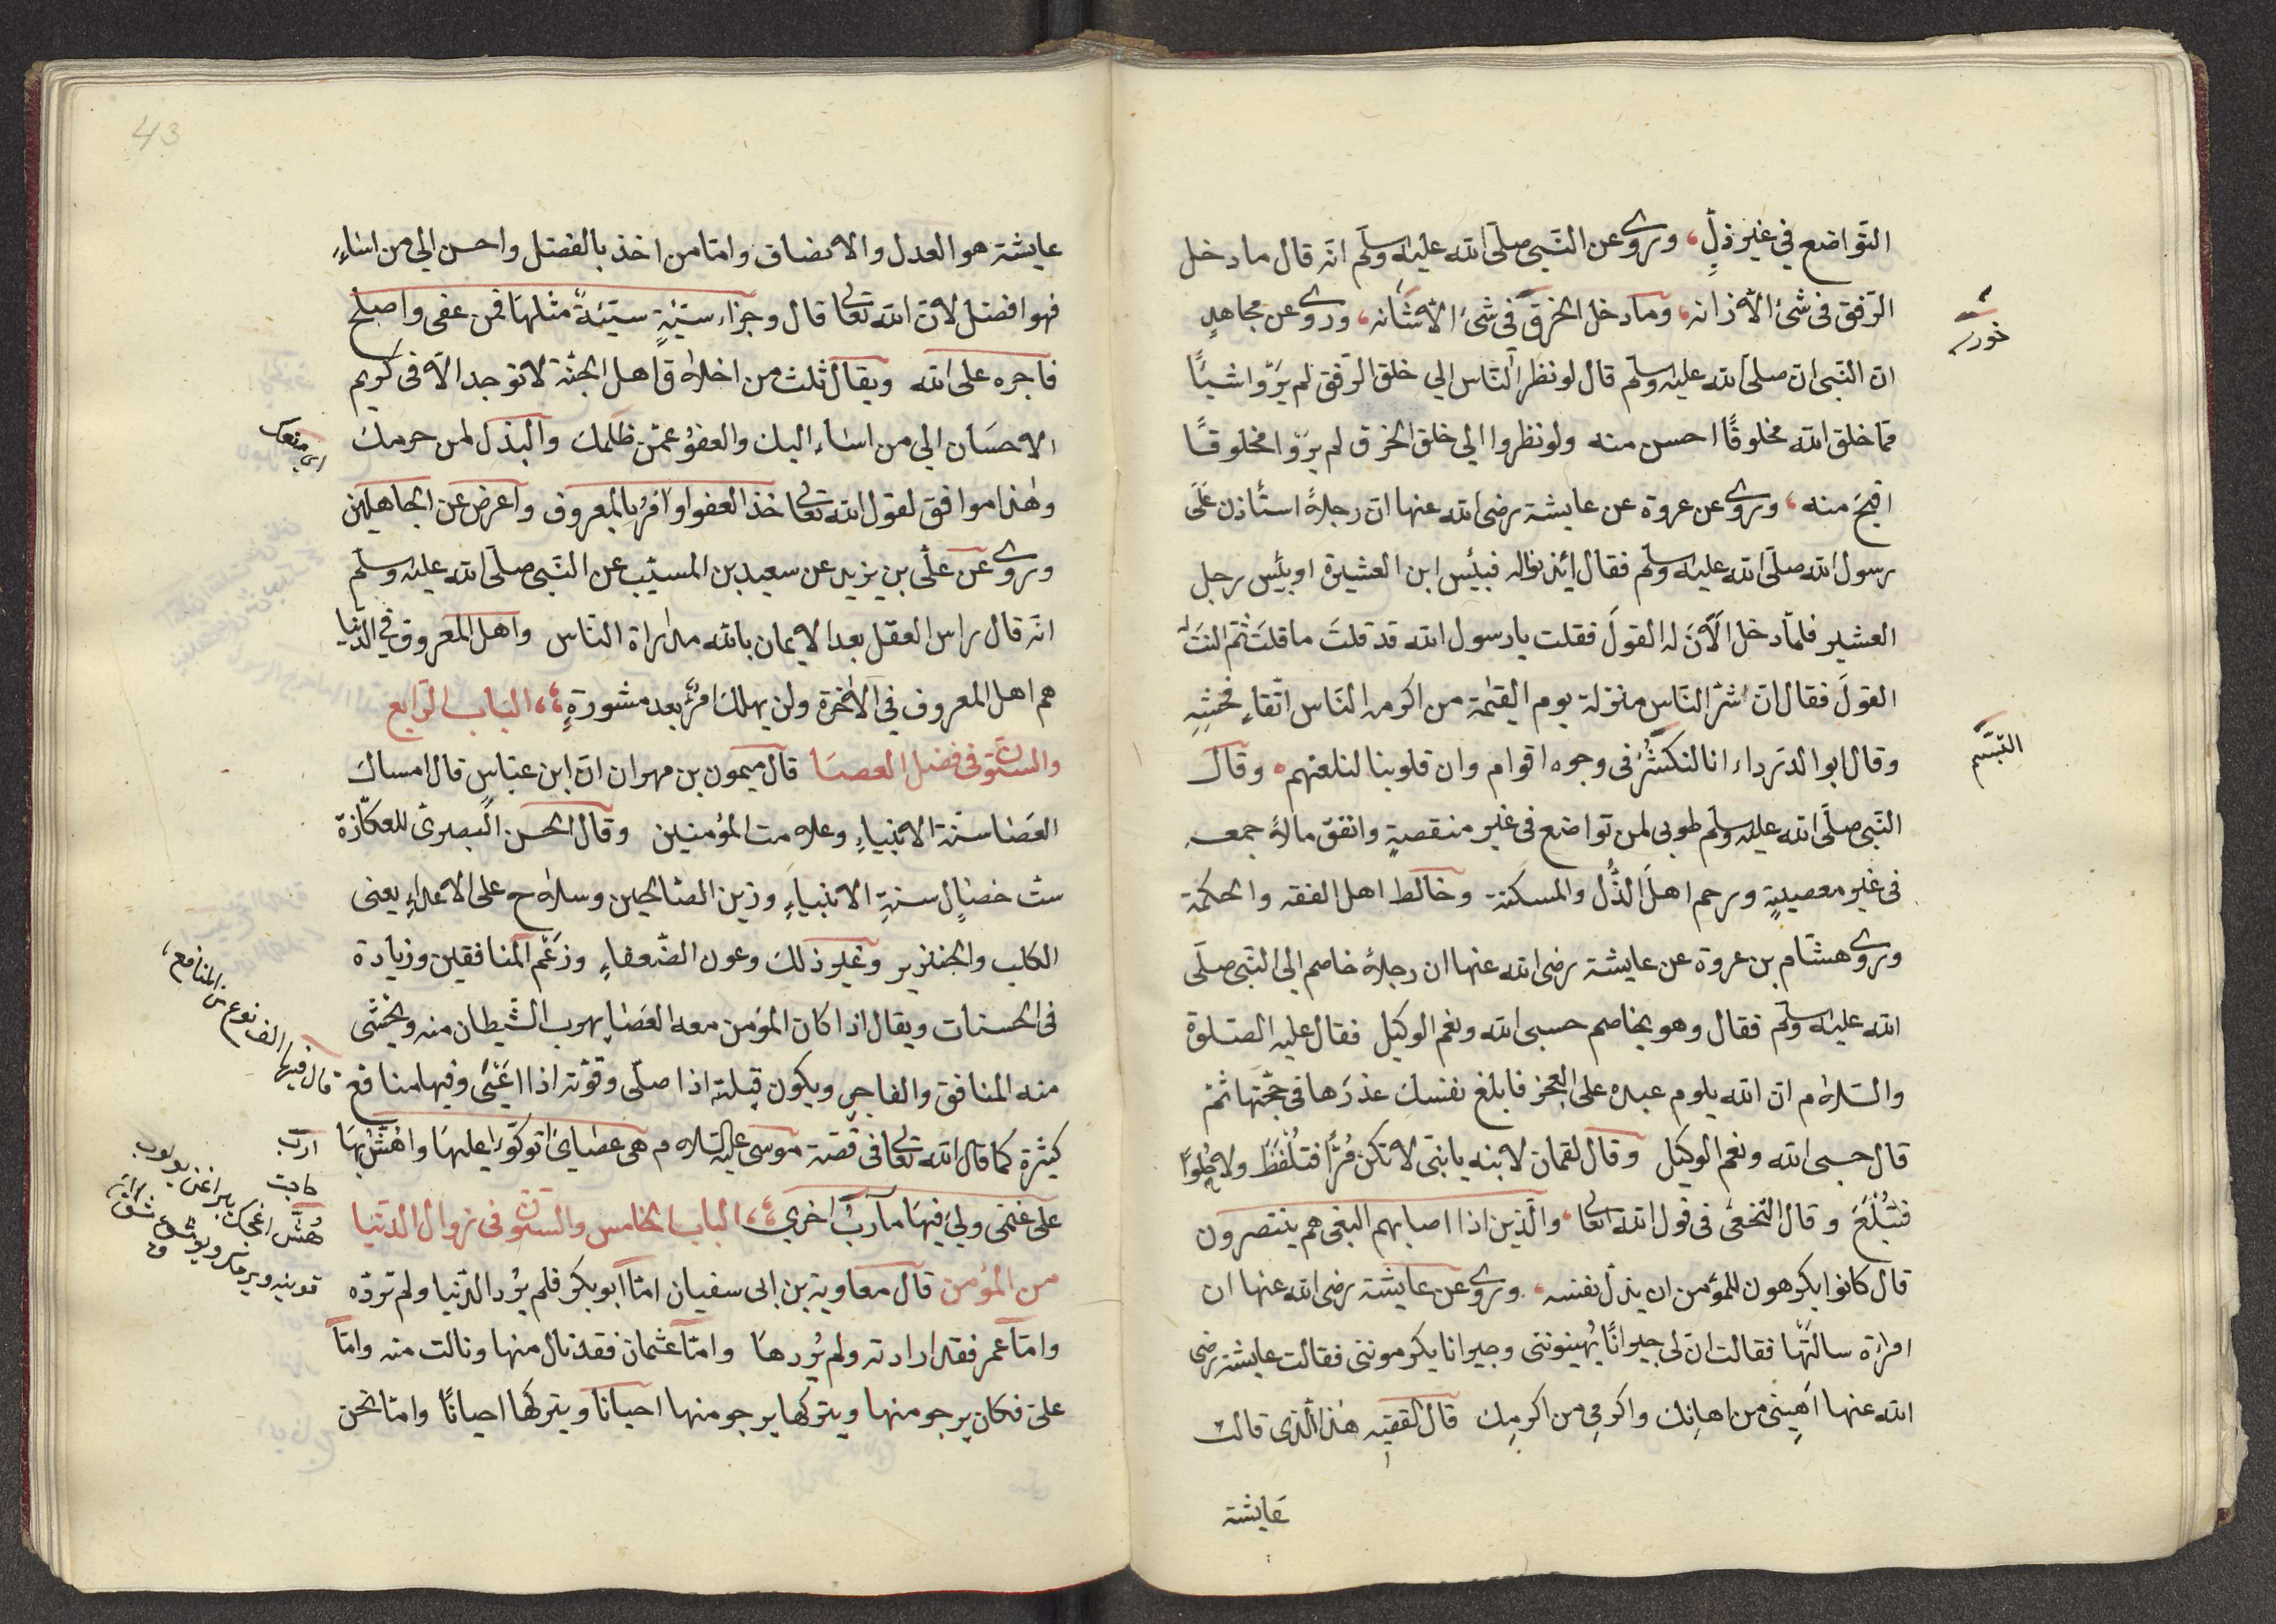 التواضع في غير ذلٍ، وروى عن النبى صلى الله عليه وسلم انه قال ما دخل
الرفق فى شئ الا زانه، وما دخل الخرق فى شئ الا شانه، وروى عن مجاهد
ان النبى ان صلى الله عليه وسلم قال لو نظر الناس الي خلق الرفق لم يروا شيئًا
مما خلق الله مخلوقًا احسن منه ولو نظروا الي خلق الخرق لم يروا مخلوقًا
اقبح منه، وروى عن عروة عن عايشة رضى الله عنها ان رجلاً استأذن على
رسول الله صلى الله عليه وسلم فقال ائذنوا له فبئس ابن العشيرة او بئس رجل
العشير فلما دخل الآن له القول فقلت يا رسول الله قد قلت ما قلت ثم النت له
القول فقال ان اشر الناس منزلة يوم القيمة من اكرمه الناس اتقاء فحشه
وقال ابو الدرداء انا لنكشر فى وجوه اقوام وان قلوبنا لتلعنهم وقال
النبى صلى الله عليه وسلم طوبى لمن تواضع فى غير منقصةٍ وانفق مالاً جمعه
فى غير معصيةٍ ورحم اهل الذل والمسكنة وخالط اهل الفقه والحكمة
وروى هشام بن عروة عن عايشة رضى الله عنها ان رجلاً خاصم الي النبى صلى
الله عليه وسلم فقال وهو يخاصم حسبى الله ونعم الوكيل فقال عليه الصلوة
والسلام ان الله يلوم عبده على العجز فابلغ نفسك عذرها فى حجتها ثم
قال حسبى الله ونعم الوكيل وقال لقمان لابنه يا بنى لا تكن مُرًّا فتلفظ ولا حلوًا
فتبلع وقال النخعى فى قول الله تعالى، والذين اذا اصابهم البغى هم ينتصرون
قال كانوا يكرهون للمؤمن ان يذل نفسه، وروى عن عايشة رضى الله عنها ان
امراة سالتها فقالت ان لى جيرانًا يهينوننى وجيرانا يكرموننى فقالت عايشة رضى
الله عنها اهينى من اهانك واكرمى من اكرمك قال الفقيه هذا الذى قالت
عايشة
خور
التبسم
43
عايشة هو العدل والانصاف واما من اخذ بالفضل واحسن الي من اساء
فهو افضل لان الله تعالى قال وجزاء سيئةٍ سيئةٌ مثلها فمن عفى واصلح
فاجره على الله ويقال ثلث من اخلاق اهل الجنة لا توجد الا فى كريم
الاحسان الي من اساء اليك والعفو عمن ظلمك والبذل لمن حرمك
وهذا موافق لقول الله تعالى خذ العفو وامر بالمعروف واعرض عن الجاهلين
وروى عن على بن يزيد عن سعيد بن المسيب عن النبى صلى الله عليه وسلم
انه قال راس العقل بعد الايمان بالله مداراة الناس واهل المعروف في الدنيا
هم اهل المعروف في الآخرة ولن يهلك امرؤ بعد مشورةٍ، الباب الرابع
والستون فى فضل العصا قال ميمون بن مهران ان ابن عباس قال امساك
العصا سنة الانبياء وعلامت المؤمنين وقال الحسن البصرى للعكازة
ست خصال سنة الانبياء وزين الصالحين وسلاح على الاعداء يعنى
الكلب والخنزير وغير ذلك وعون الضعفاء وزغم المنافقين وزيادة
فى الحسنات ويقال اذا كان المؤمن معه العصا يهرب الشيطان منه ويخشى
منه المنافق والفاجر ويكون قبلته اذا صلى وقوته اذا اعيى وفيها منافع
كثيرة كما قال الله تعالى فى قصة موسى عليه السلام هى عصاى اتوكؤا عليها واهش بها
على غنمى ولي فيها مآرب اخري، الباب الخامس والستون فى زوال الدنيا
من المؤمن قال معاوية بن ابى سفيان اما ابو بكر فلم يُرد الدنيا ولم ترده
واما عمر فقد ارادته ولم يُردها واما عثمان فقد نال منها ونالت منه واما
على فكان يرجو منها ويتركها يرجو منها احيانا ويتركها احيانًا واما نحن
اى منعك
قال فيها الف نوع من المنافع،
ارب
حاجت